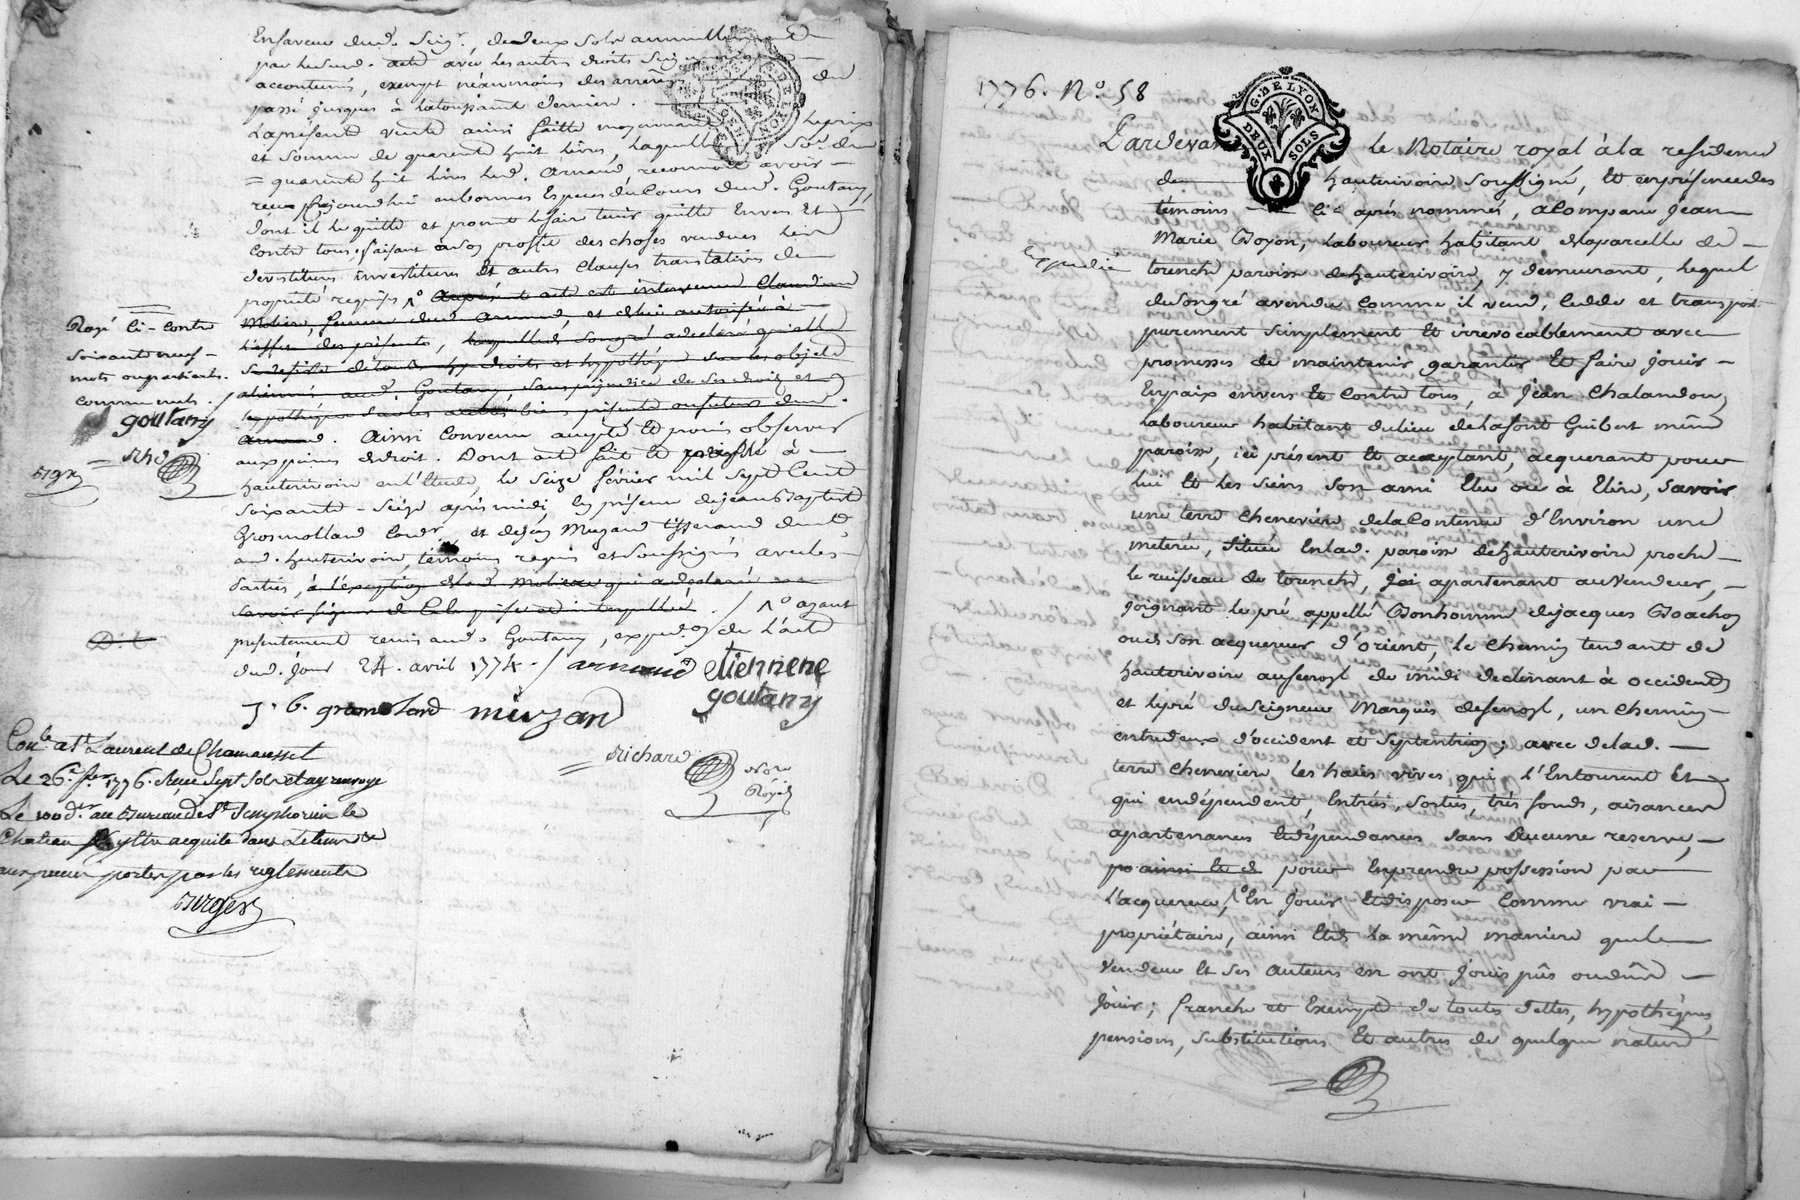 En faveur dud. Seigr, de deux sols annuellement
par led. acte avec les autres droits Seig
accoutumés, exempt néanmoins des arrérages du
passé jusques à la toussaint dernier.
La présente vente ainsi faitte moyennant le prix
et somme de quarente huit livres, laquelle So. de
quarente huit livres led. Arnaud reconnoit avoir
reçu ce jourdhui en bonnes Espèces du Cours dud. Goutany,
dont il le quitte et promet le faire tenir quitte Envers Et
Contre tous, faisant à son proffit des choses vendues les
devestiture investiture Et autres Clauses translatives de
propriété requises /\° Au présent acte est intervenue Claudine
Moliere, femme dud. Arnaud, et de lui autorisée à
l'effet des présentes, laquelle de son gré a déclaré qu'elle
se désiste de tous droits et hypothèque sur les objets
aliénés aud. Goutany sans préjudice de ses droits et
hypothèque sur les autres biens présents ou futurs dud.
Arnaud. Ainsi Convenu accepté Et promis observer
aux peines de droit. Dont acte fait Et passé à
hauterivoire en l'Etude, le Seize février mil Sept Cent
Soixante-Seize après midi, En présence de jean Baptiste
Grosmollard Cordr. et de jean Muzard tisserand dem.t
aud. hauterivoire, témoins requis et Soussignés avec les
parties, à l'exception de lad. Moliere qui a déclaré ne
savoir signer de Ce Enquise et interpellée. /\° ayant
présentement remis aud. Goutany, expedon de l'acte
dud. jour 24. avril 1774. / arnaud etiennene
goutany
J. b. gromolard muzard
Richard
Nore
Royal
Rayé Ci-contre
Soixante neuf
mots
comme nuls.
goutany
Rhd
D. t
Conlé a St Laurent de Chamousset
Le 26e fer 1776. Reçu Sept Sols et ay renvoyé
Le 100 dr au Bureau de St Simphorien le
Chateau pour y Etre acquité dans Le tems &
aux peines portées par les reglements
Berger
1776. No. 58
G. DE LYON
DEUX SOLS
Pardevant le Notaire royal à la résidence
de hauterivoire Soussigné, Et en présence des
témoins Ci-après nommés, a Comparu jean
Marie Boyon, Laboureur habitant de la parcelle de
Expedié
torenche paroisse de hauterivoire, y demeurant, lequel
de son gré a vendu Comme il vend, Cedde et transporte
purement Simplement Et irrévocablement avec
promesses de maintenir garantir Et faire jouir
En paix envers Et Contre tous, à jean Chalandon
Laboureur habitant du lieu de la font Guibert même
paroisse, ici présent Et acceptant, acquerant pour
lui Et les siens Son ami Elu ou à Elire, Savoir
une terre Chenevière de la Contenue d'Environ une
meterée, Située En lad. paroisse de hauterivoire proche
le ruisseau de torenche, appartenant au vendeur,
joignant le pré appellé Bonhomme de jacques Boachon
oud. son acquereur d'orient, le Chemin tendant de
hauterivoire au fenoyl de midi declinant à occident
et le pré du Seigneur Marquis de fenoyl, un Chemin
entredeux d'occident et Septentrion; avec de lad.
terre Chenevière les haies vives qui l'Entourent Et
qui en dépendent, Entrées, Sorties, très fonds, aisances
apartenances Et dépendances Sans Aucune reserve,
po ainsi Et d pour En prendre possession par
l'acquereur, /\° En jouir Et disposer Comme vrai
propriétaire, ainsi Et de la même manière que le
Vendeur Et Ses auteurs en ont jouis pûs ou dûs
jouir; franche et Exempte de toutes dettes, hypothèques,
pensions, substitutions Et autres de quelque nature